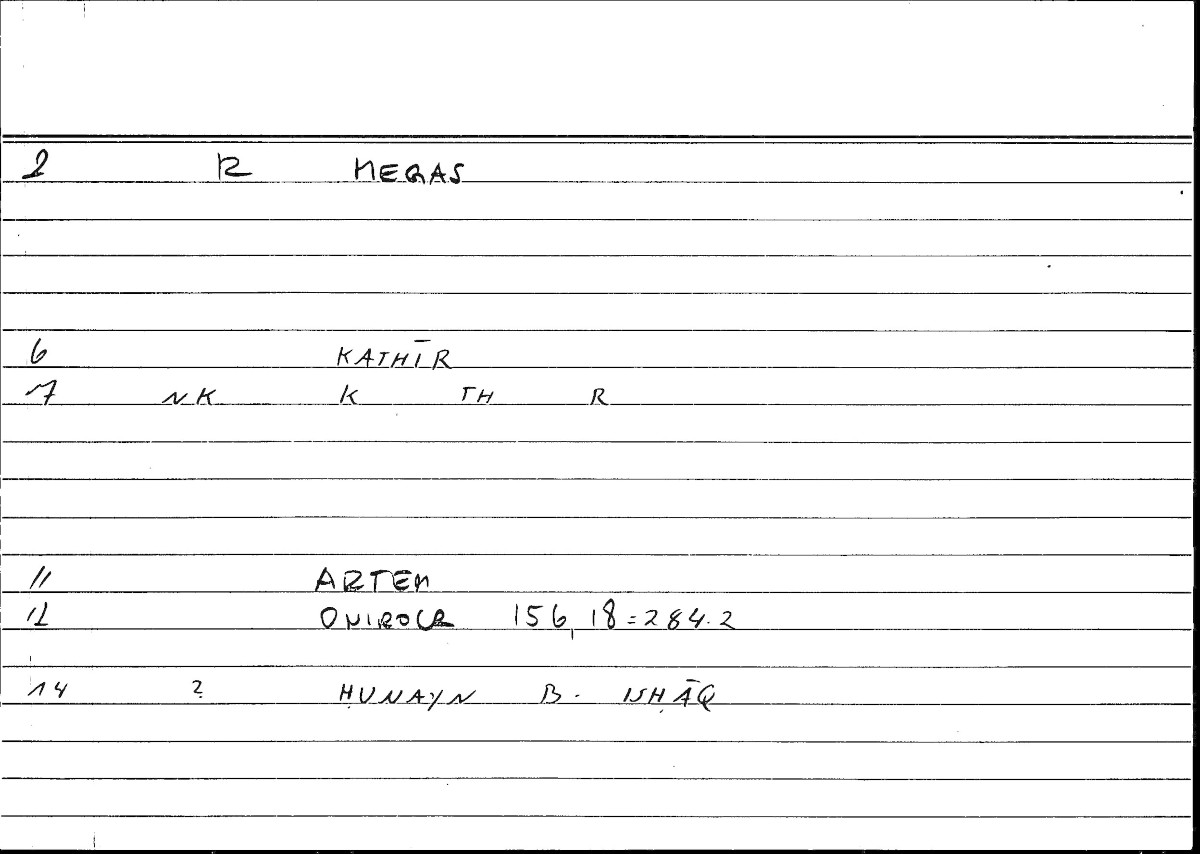 2 R MEGAS
6 KATHĪR
7 NK K TH R
11 ARTEM
12 ONIROCR 156,18=284.2
14 2 ḤUNAYN B. ISḤĀQ